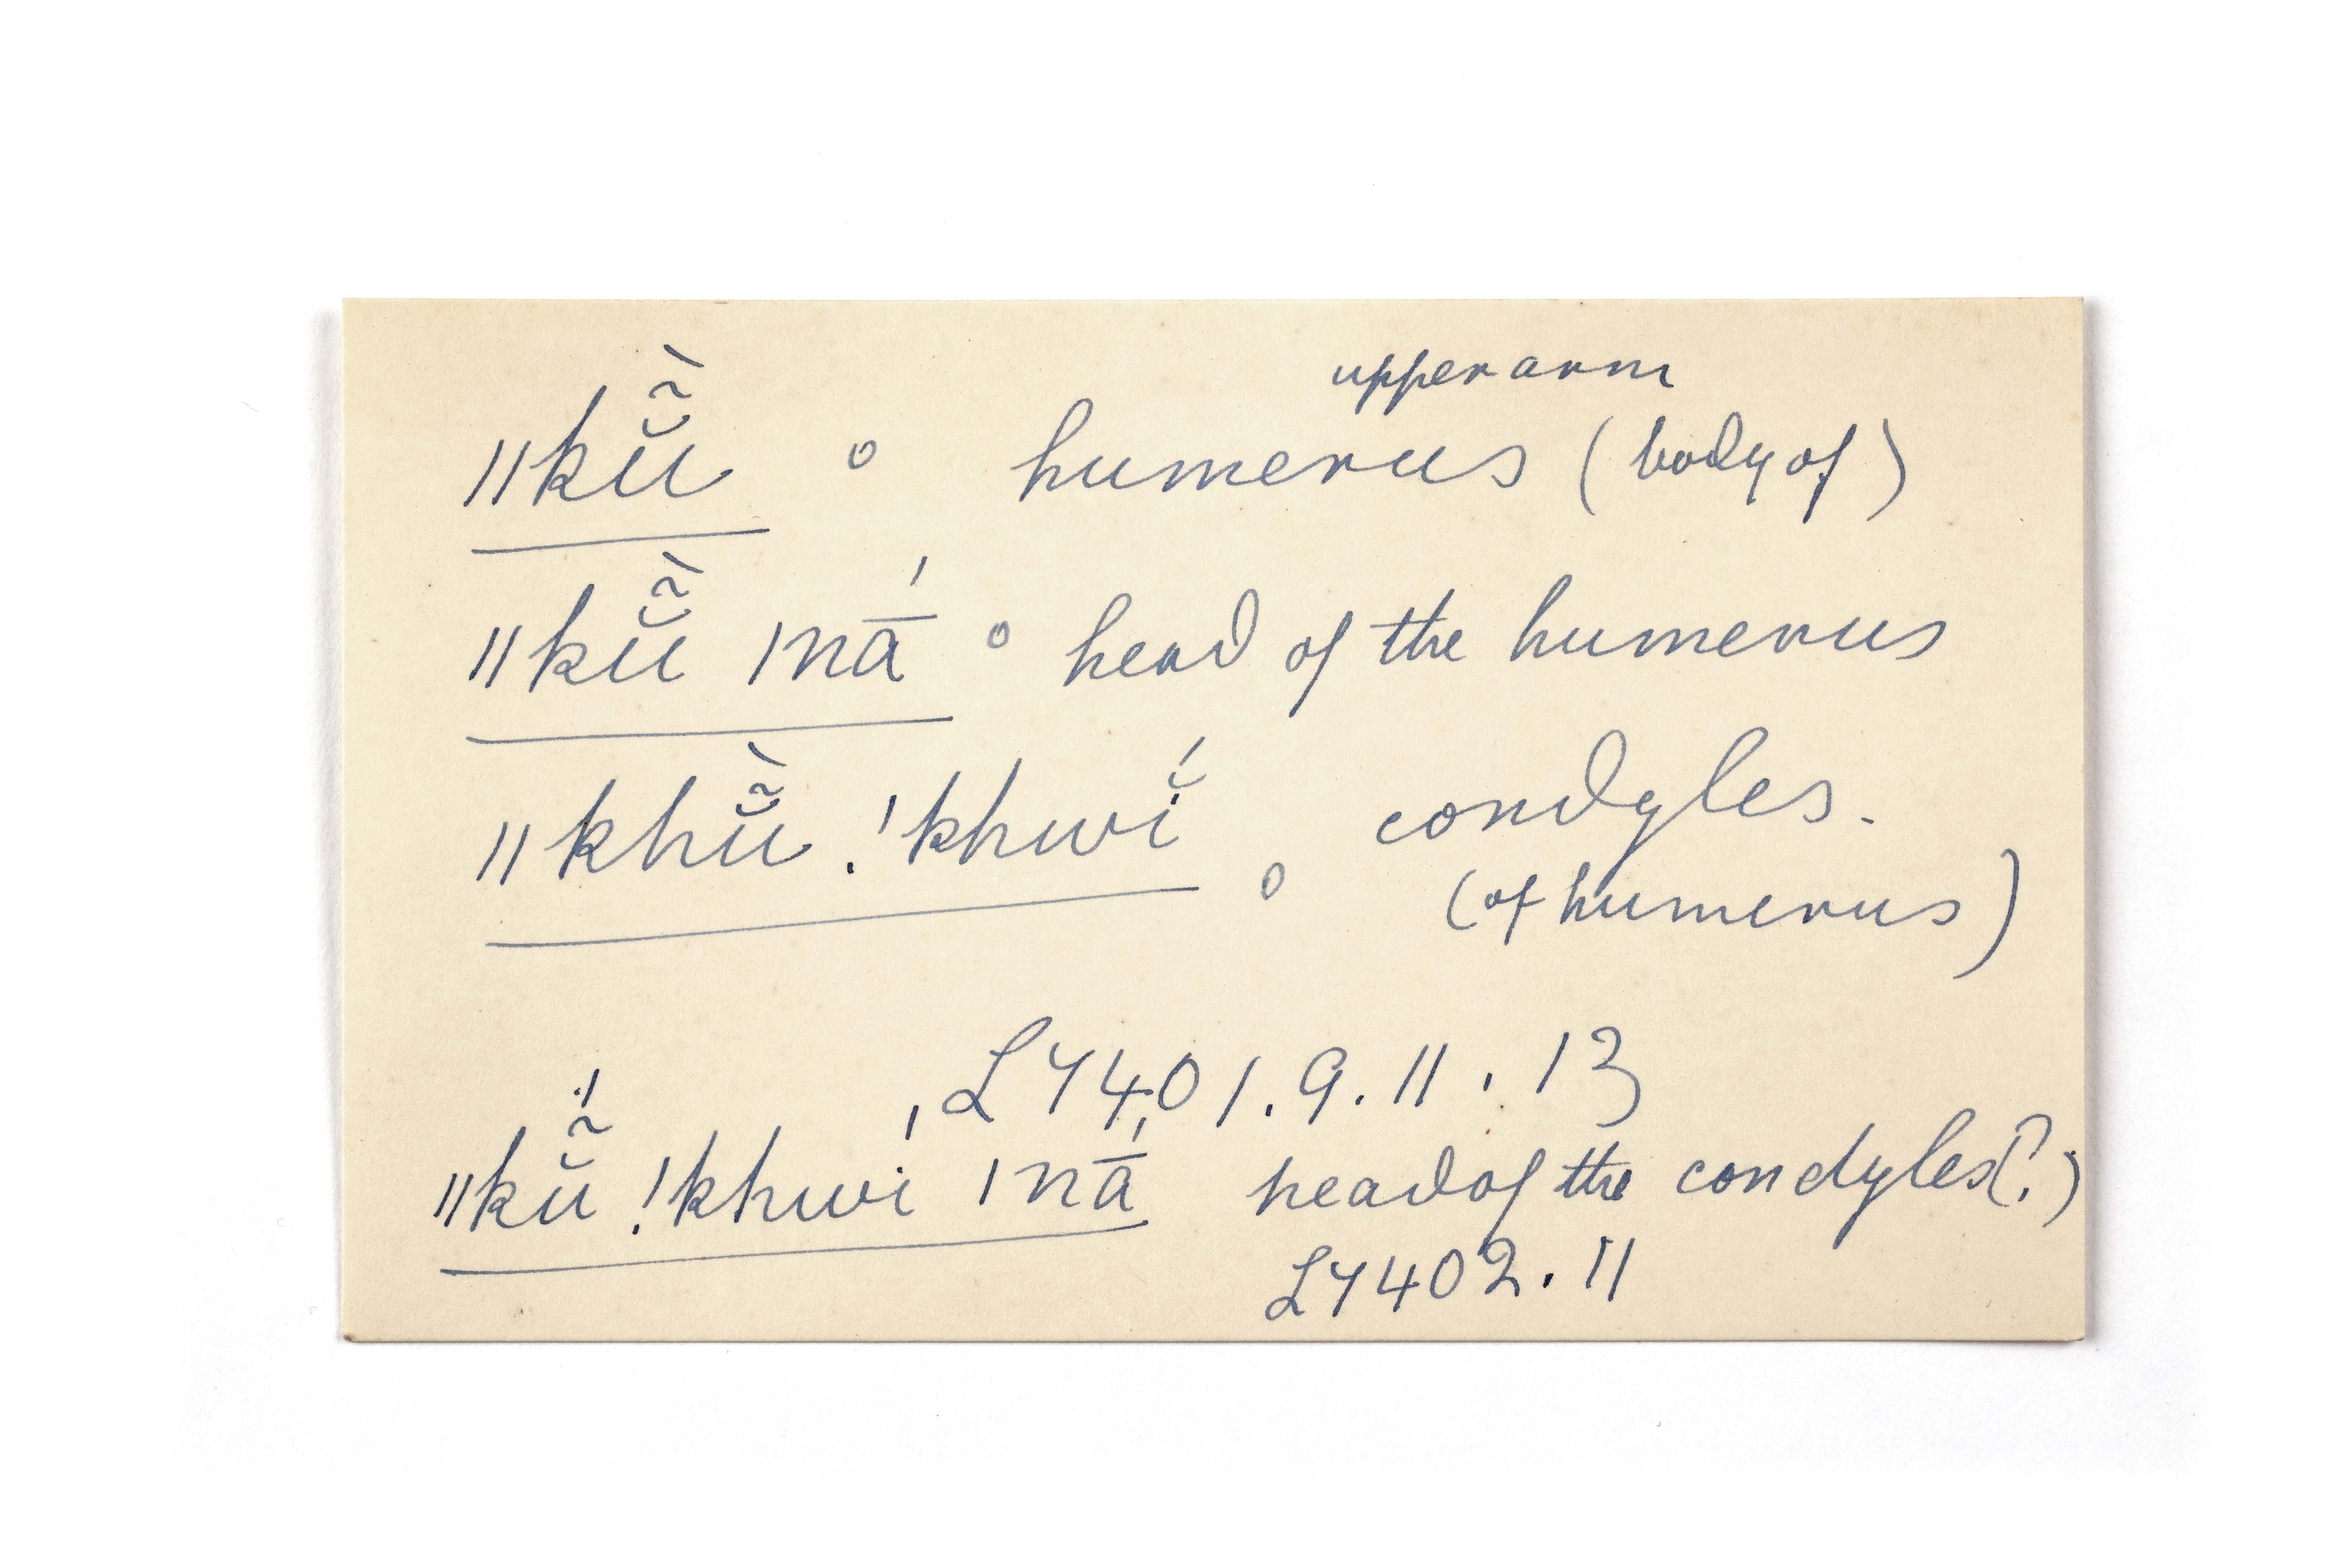 upper arm
ǁkŭ̃̀ o humerus (body of)
ǁkŭ̃̀ ǀnā́ o head of the humerus
ǁkhŭ̃̀ ǃkhwĭ́ o condyles.
(of humerus)
LY401.9.11.13
ǁkŭ̃́ ǃkhwí ǀnā́ head of the condyles(?)
LY402.11